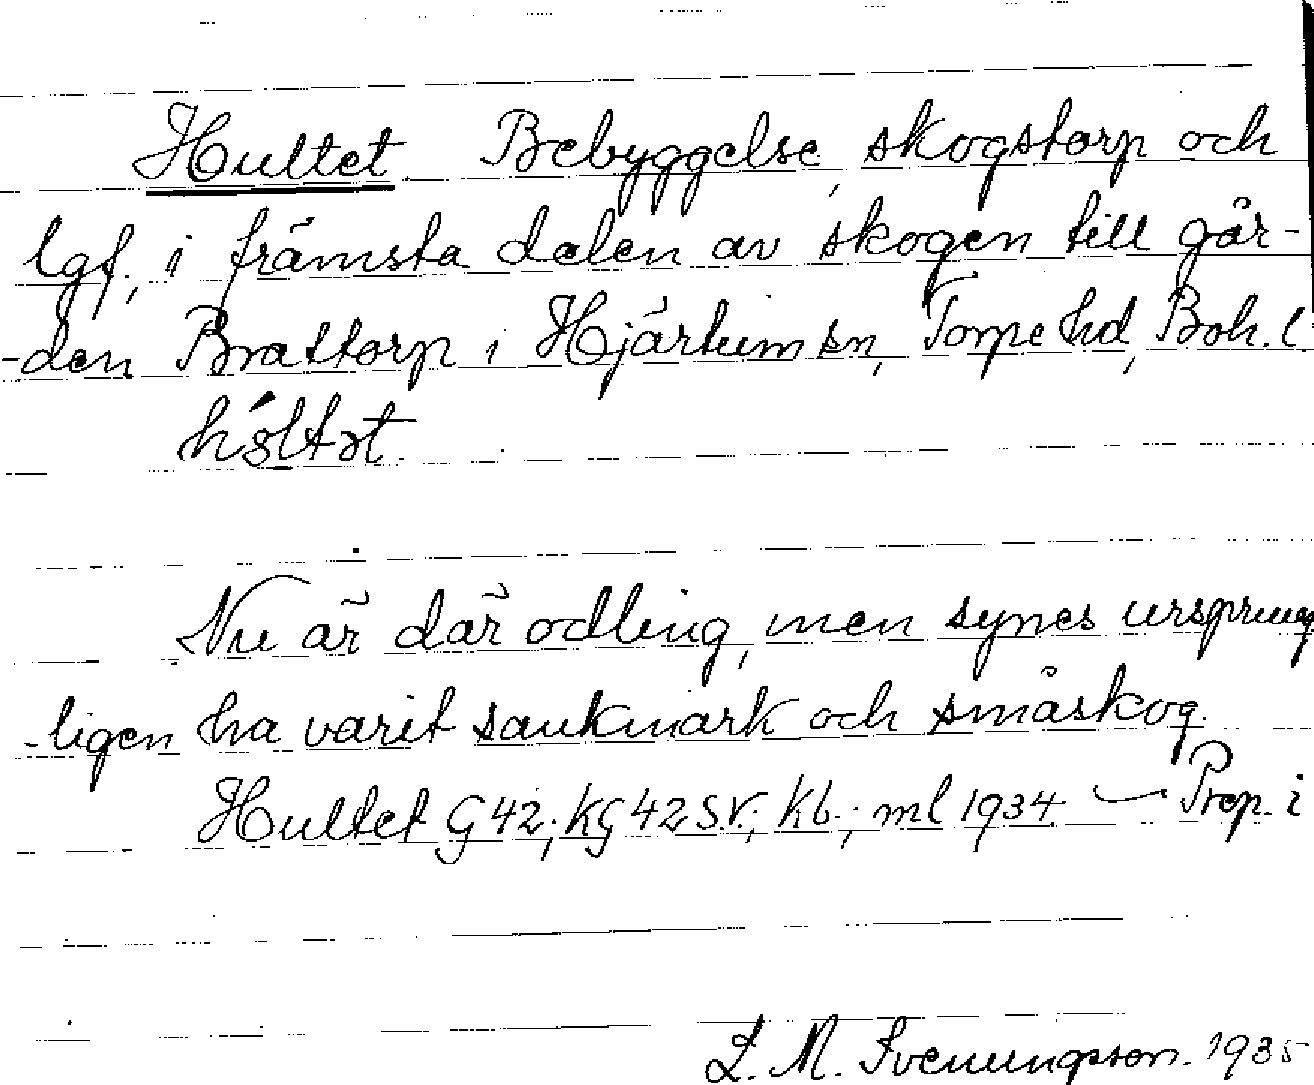 Hultet Bebyggelse, skogstorp och
lgf., i främsta dalen av skogen till går-
-den Brattorp i Hjärtum sn, Torpe hd, Boh. l
hò̤ltət.
Nu är där odling, men synes ursprung
-ligen ha varit sankmark och småskog.
Hultet G 42; KG 42 S.V.; Kb.; ml 1934. — Prep. i
L. M. Svenungsson. 1935